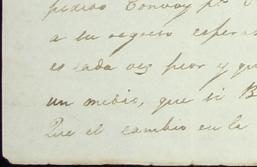 pedido Convoy pa
a su regreso espera
es cada vez peor y qu
un medio, que si B
Que el cambio en la